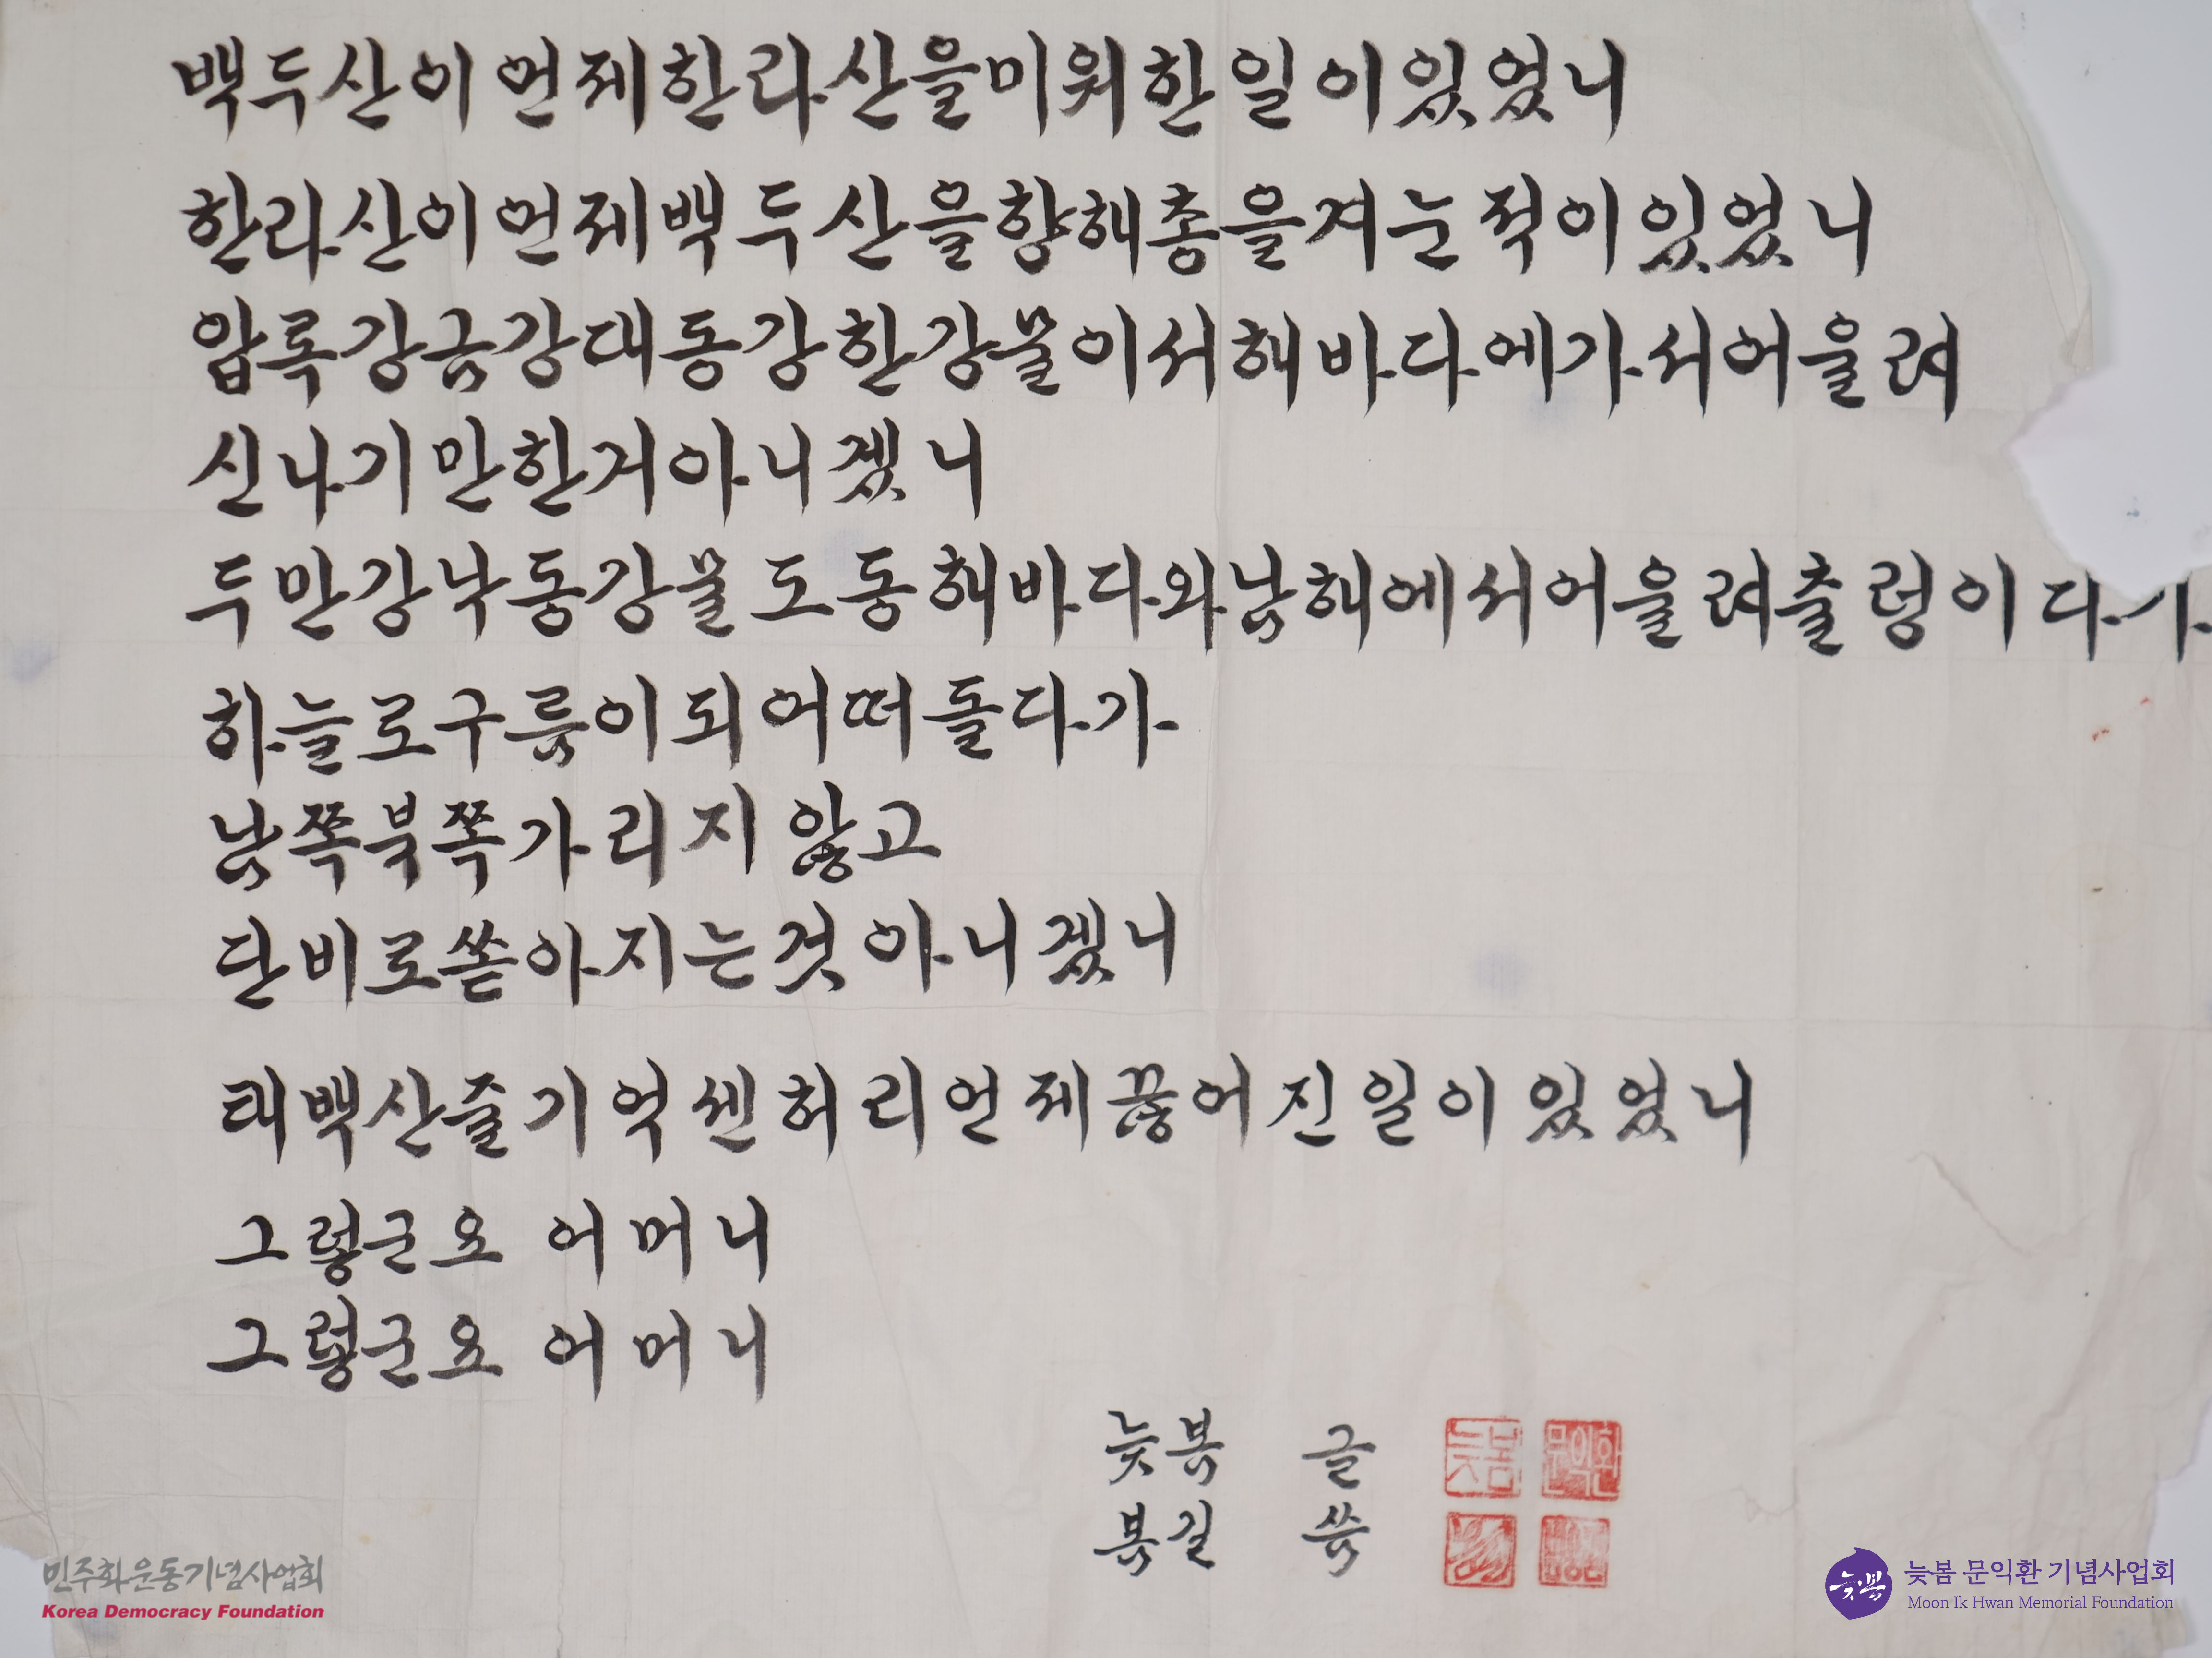 백두산이 언제 한라산을 미워한 일이 있었니
한라산이 언제 백두산을 향해 총을 겨눈 적이 있었니
압록강 금강 대동강 한강물이 서해바다에 가서 어울려
신나기만 한거 아니겠니
두만강 낙동강물도 동해바다와 남해에서 어울려 출렁이다가
하늘로 구름이 되어 떠돌다가
남쪽 북쪽 가리지 않고
단비로 쏟아지는 것 아니겠니
태백산 줄기 억센 허리 언제 끊어진 일이 있었니
그렇군요 어머니
그렇군요 어머니
늦봄 글
봄길 씀
늦봄 문익환
민주화운동기념사업회
Korea Democracy Foundation
늦봄 문익환 기념사업회
Moon Ik Hwan Memorial Foundation